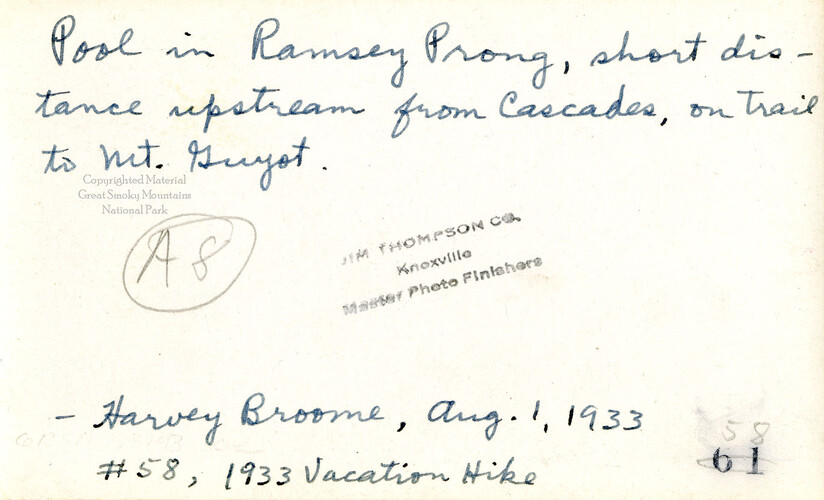 Pool in Ramsey Prong, short dis-
tance upstream from Cascades, on Trail
to Mt. Guyot.
Copyrighted Material
Great Smoky Mountains
National Park
A8
JIM THOMPSON CO.
Knoxville
Master Photo Finishers
- Harvey Broome, Aug. 1, 1933
#58, 1933 Vacation Hike
58
61